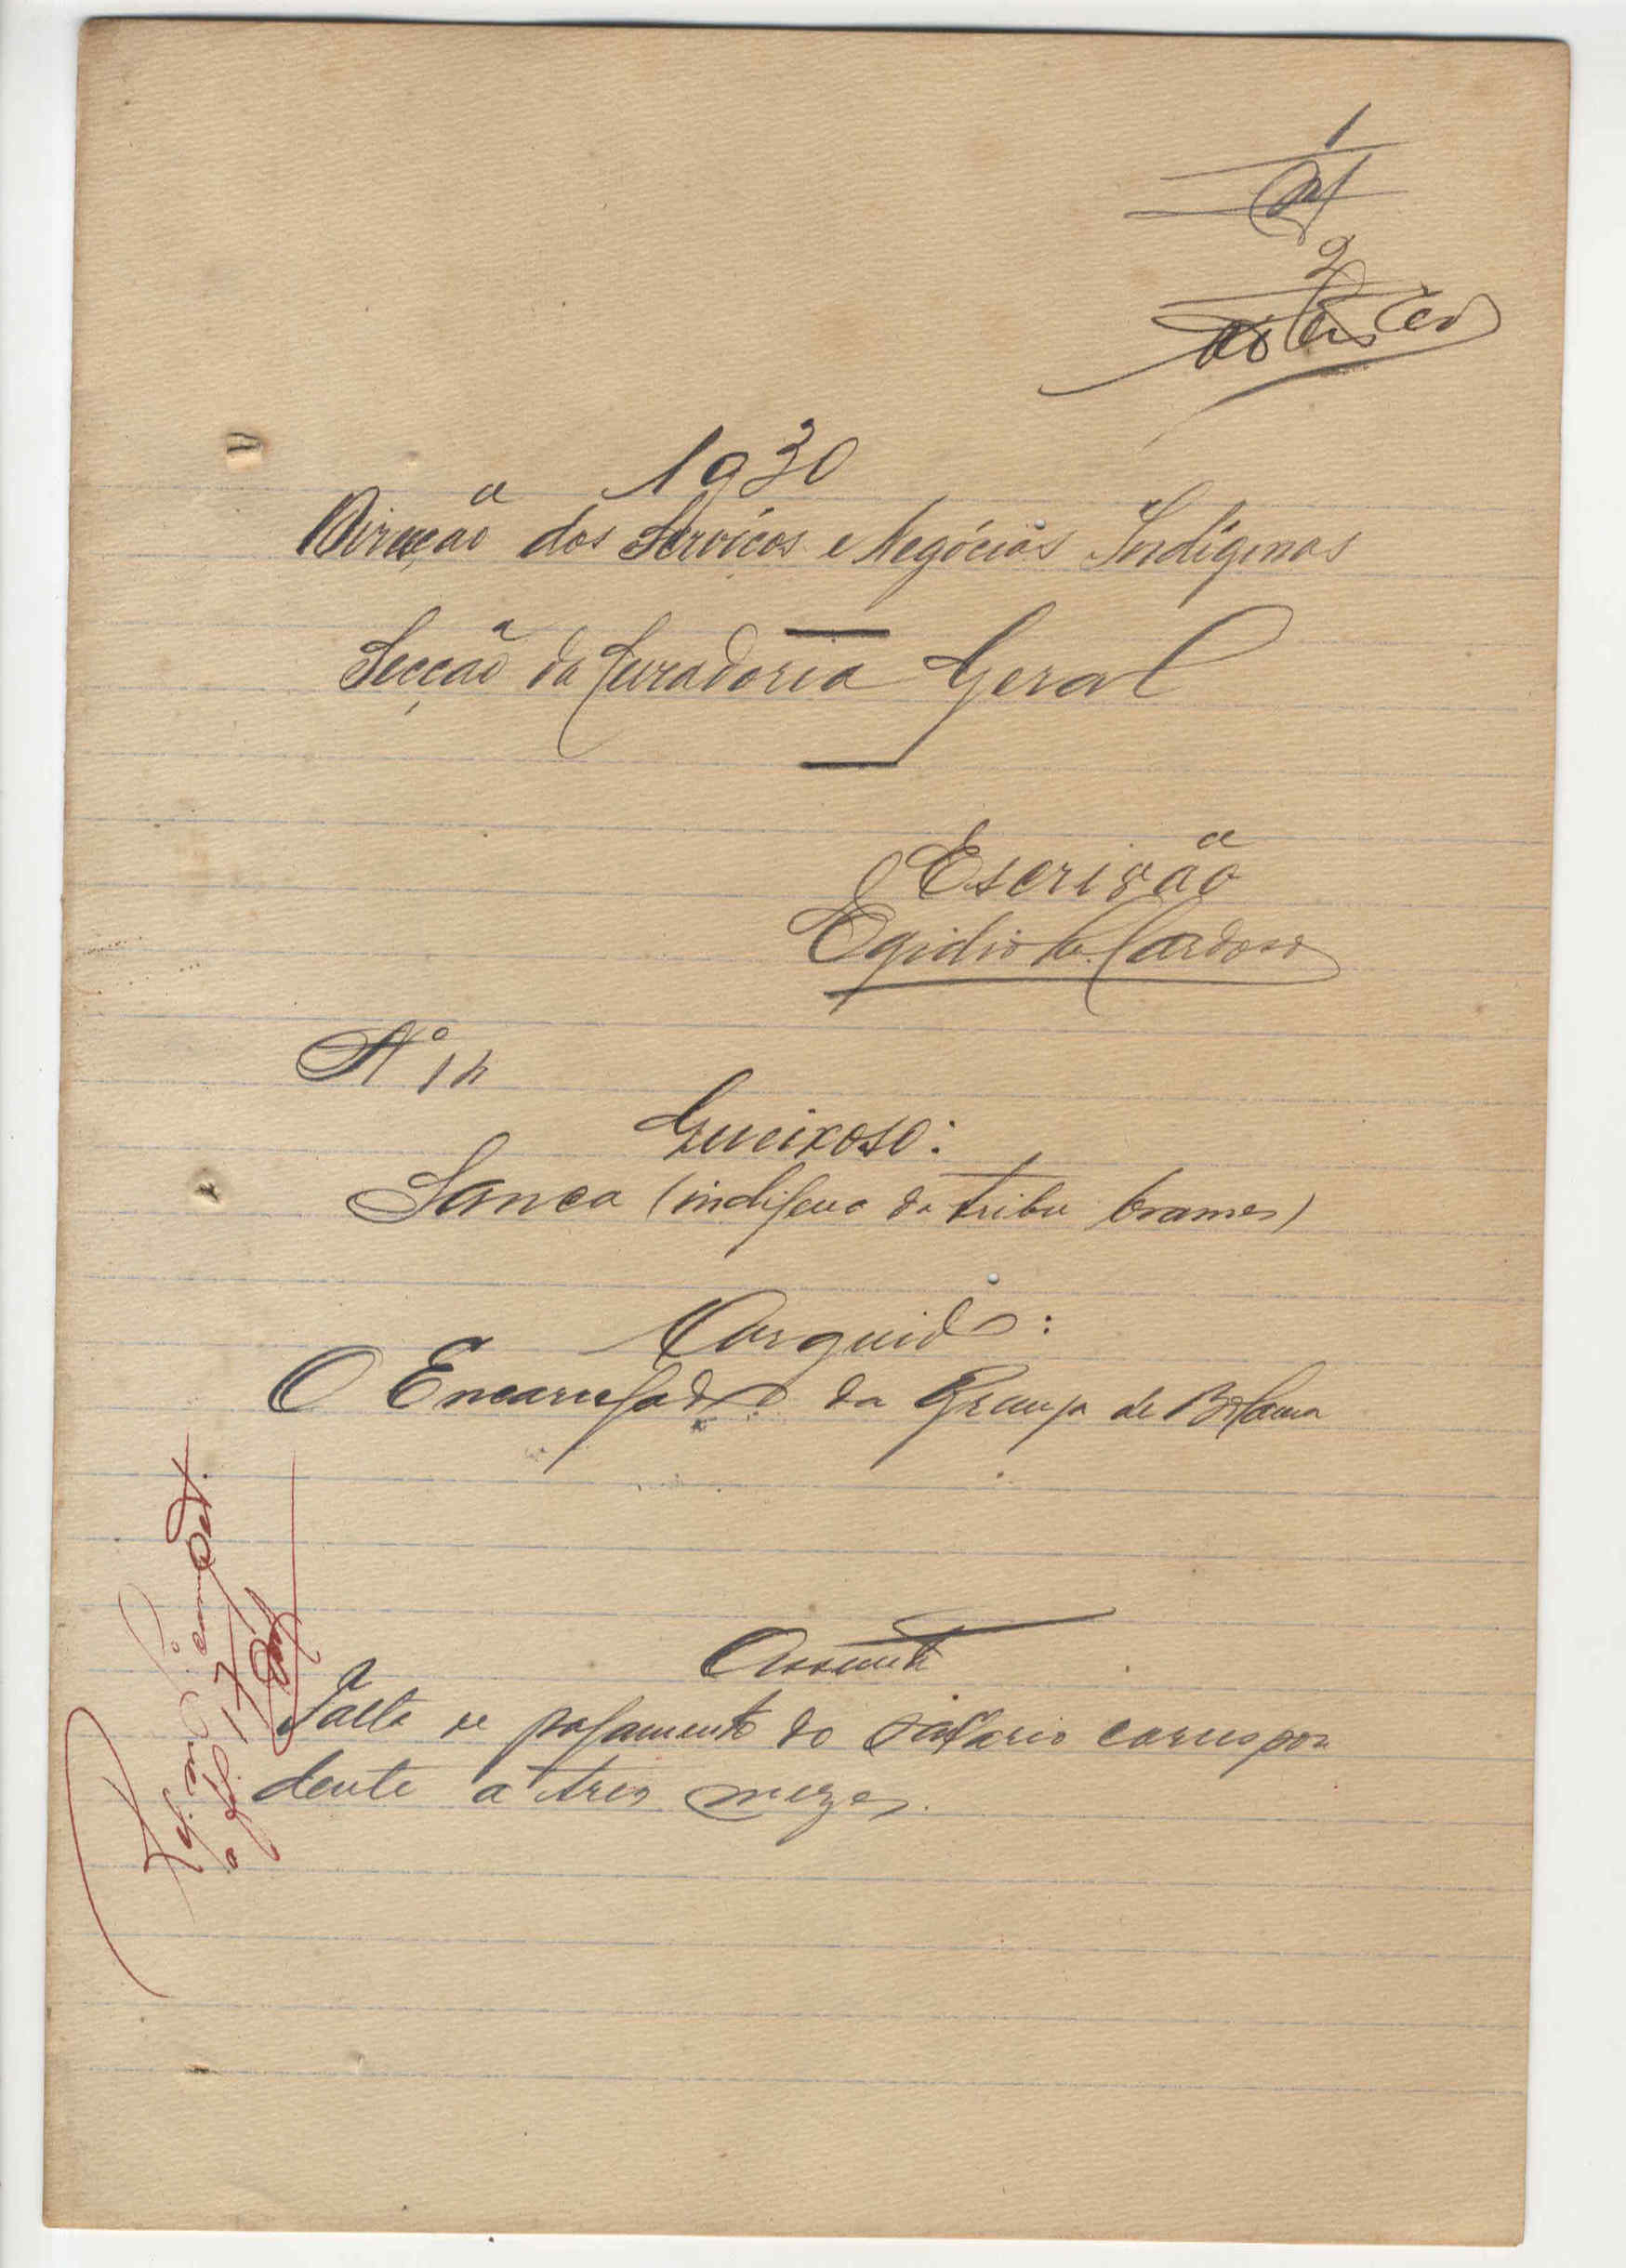 1
2
1930
Direcção dos Serviços e Negócios Indígenas
Secção da Curadoria Geral
Escrivão
Egidio Cardoso
Nº 14
Queixoso:
Sanca (indigena da tribu brames)
Arguido:
O Encarregado da Granja de Bolama
Assunto
Falta de pagamento do salario correspon
dente a tres mezes.
Reg.
a fl. 17